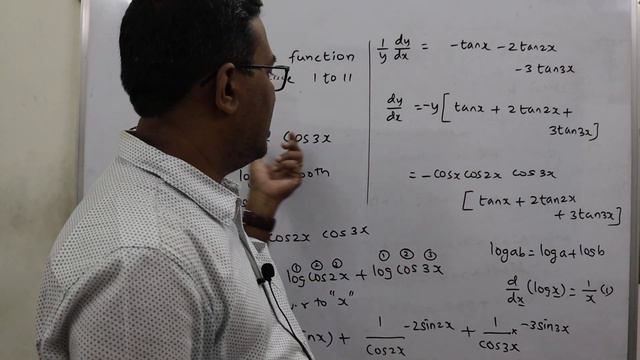 function
1 to 11
cos3x
cos2x cos3x
① ② ③ ① ② ③
log cos2x + log cos3x
w.r to "x"
+ 1/cos2x -2sin2x + 1/cos3x × -3sin3x
1/y dy/dx = -tanx - 2tan2x
- 3tan3x
dy/dx = -y [ tanx + 2tan2x +
3tan3x ]
= -cosx cos2x cos3x
[ tanx + 2tan2x
+ 3tan3x ]
log ab = log a + log b
d/dx (log x) = 1/x (1)